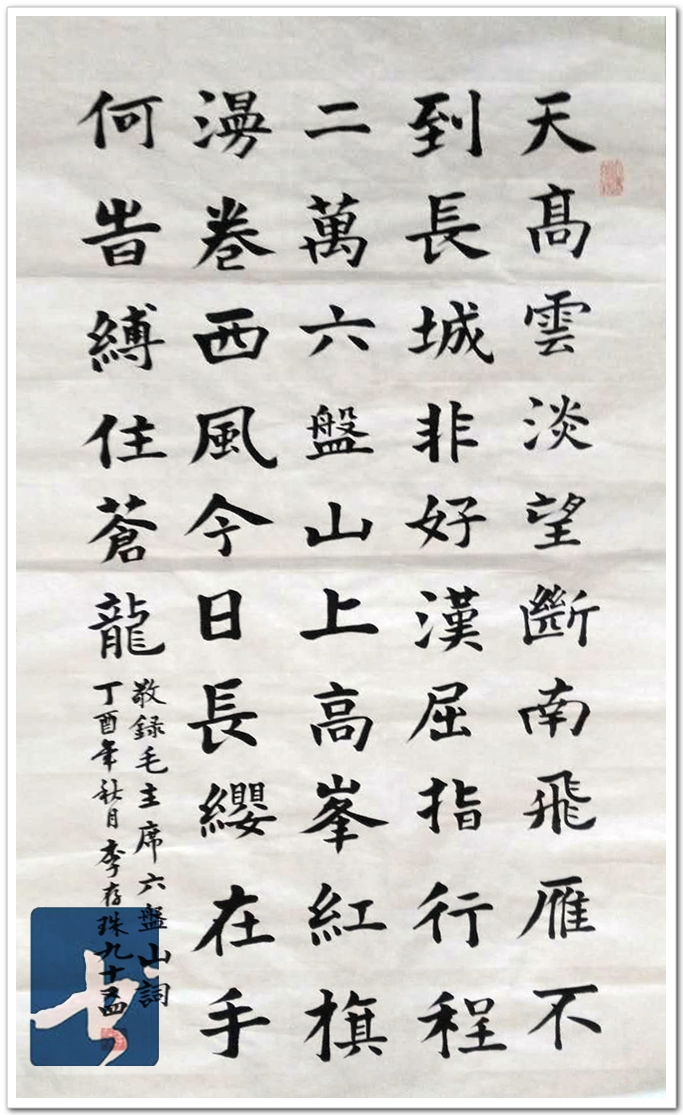 天髙雲淡望斷南飛雁不
到長城非好漢屈指行程
二萬六盤山上高峯紅旗
漫卷西風今日長纓在手
何旹縛住蒼龍
敬録毛主席六盤山詞
丁酉年秋月李存珠九十
书